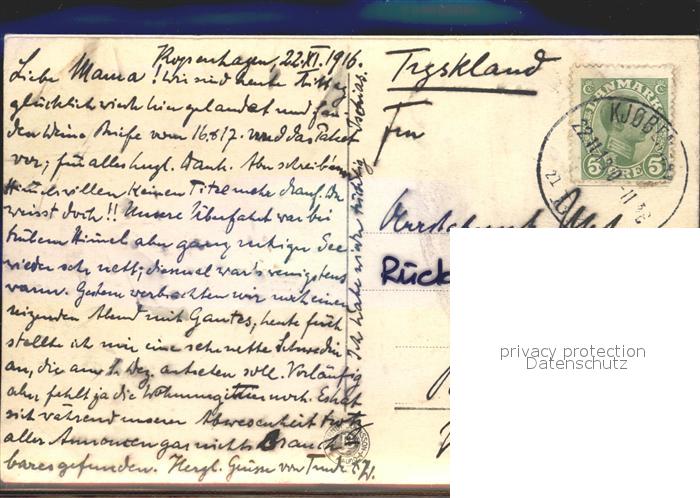 Kopenhagen, 22.XI.1916.
Liebe Mama! Wir sind heute Mittag
glücklich wieder hier gelandet und fan
den Deine Briefe vom 16. & 17. und das Paket
vor; für alles herzl. Dank. Aber schreibe um
Himmels willen keinen Titel mehr drauf. Du
weisst doch!! Unsere Überfahrt war bei
trübem Himmel aber ganz ruhiger See
wieder sehr nett; diesmal war's wenigstens
warm. Gestern verbrachten wir noch einen
reizenden Abend mit Gantes, heute früh
stellte ich mir eine sehr nette Schwedin
an, die am 1. Dez. antreten soll. Vorläufig
aber fehlt ja die Wohnung immer noch. Es hat
sich während unserer Abwesenheit trotz
aller Annoncen gar nichts Brauch
bares gefunden. Herzl. Grüsse von Trude & W.
Ich habe wieder tüchtig Ischias.
Tyskland
Frau
DANMARK
5 ØRE 5
KJØBE
22.11.16
Rück
privacy protection
Datenschutz